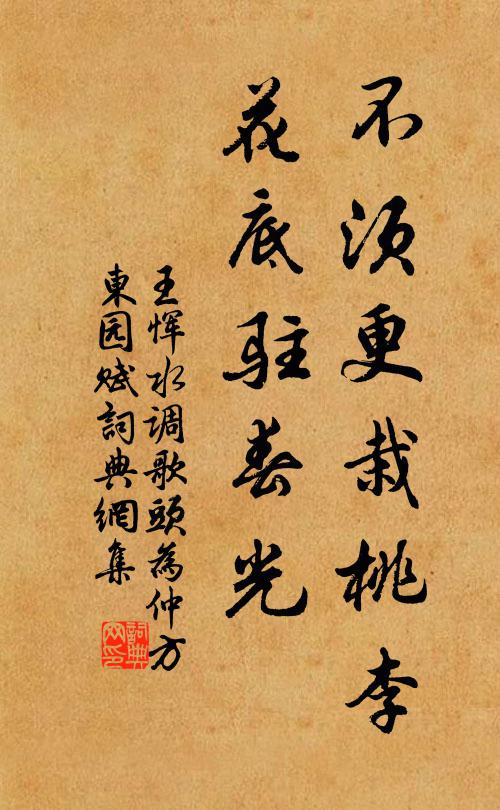 不须更栽桃李
花底驻春光
王恽水调歌頭為仲方
東园赋詞典網集
詞典
网印